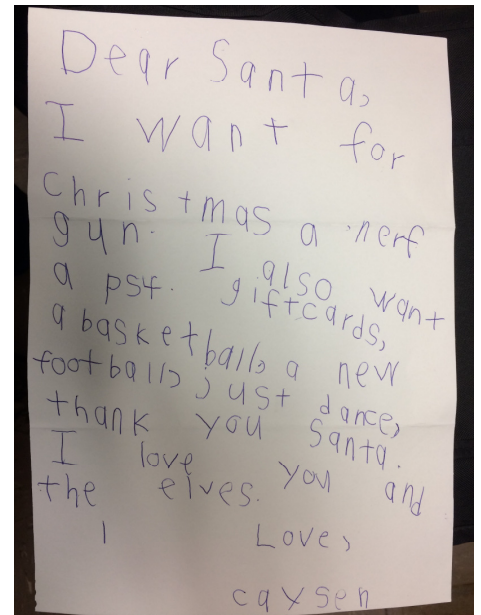 Dear Santa,
I want for
christmas a nerf
gun. I also want
a ps4. giftcards,
a basketball, a new
football, just dance,
thank you Santa.
I love you and
the elves.
Love,
caysen